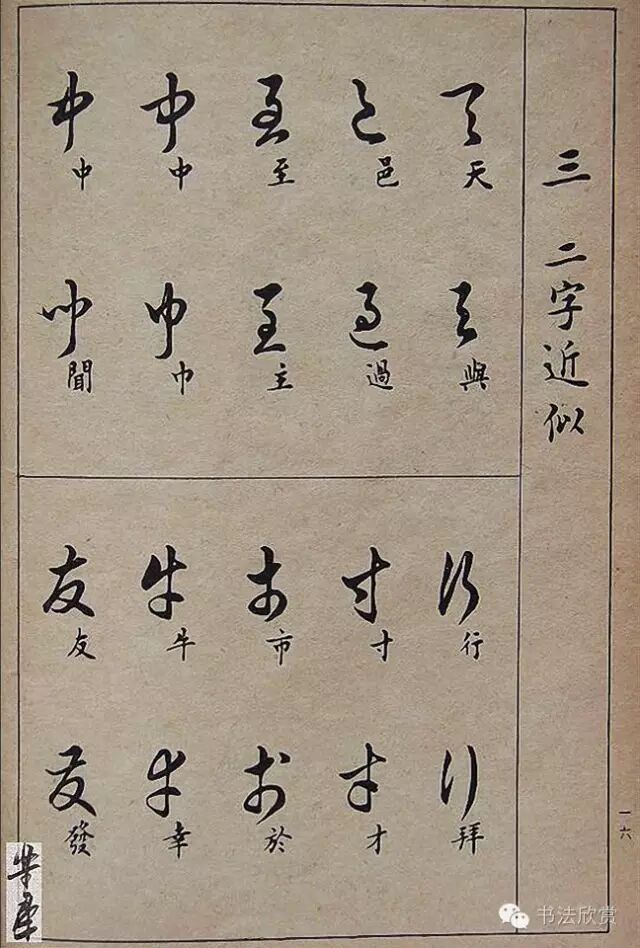 三 二字近似
天
與
邑
過
至
主
中
巾
中
聞
行
拜
寸
才
市
於
牛
幸
友
發
一六
书法欣赏